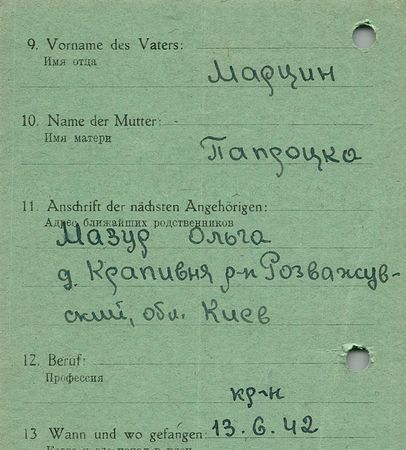 9. Vorname des Vaters:
Имя отца
Марцин
10. Name der Mutter:
Имя матери
Папроцка
11. Anschrift der nächsten Angehörigen:
Адрес ближайших родственников
Мазур Ольга
д. Крапивня р-н Розважув-
ский, обл. Киев
12. Beruf:
Профессия
кр-н
13 Wann und wo gefangen: 13.6.42